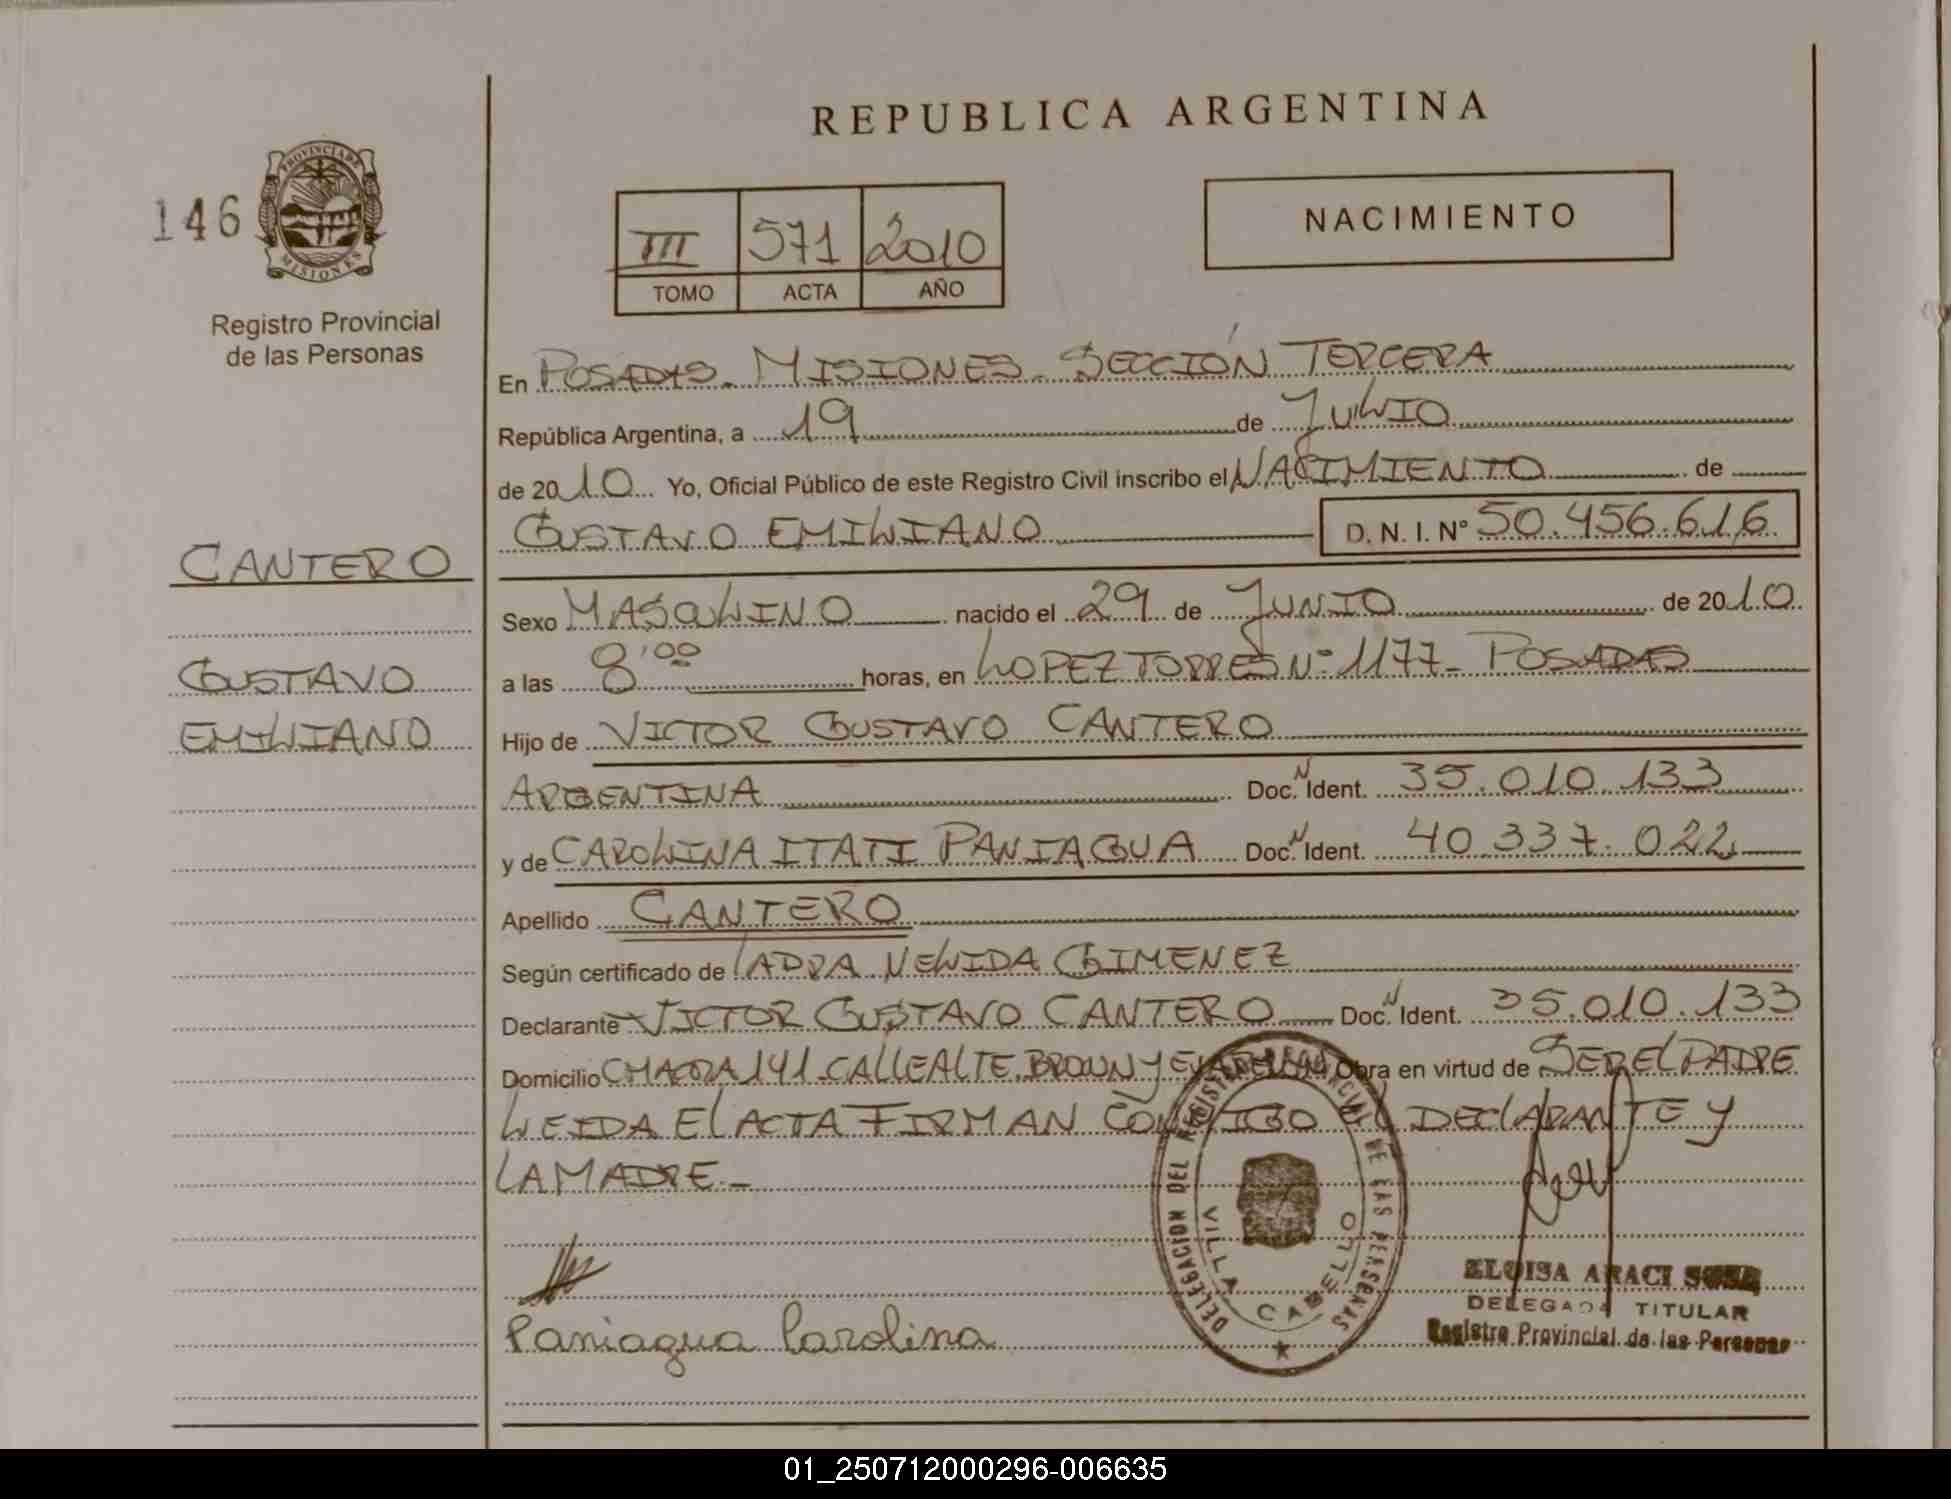 REPUBLICA ARGENTINA
146
PROVINCIA DE
MISIONES
Registro Provincial
de las Personas
NACIMIENTO
III 571 2010
TOMO ACTA AÑO
En POSADAS - MISIONES - SECCIÓN TERCERA
República Argentina, a 19 de JULIO
de 2010 Yo, Oficial Público de este Registro Civil inscribo el NACIMIENTO de
GUSTAVO EMILIANO D.N.I. Nº 50.456.616
CANTERO
GUSTAVO
EMILIANO
Sexo MASCULINO nacido el 29 de JUNIO de 2010
a las 8'00 horas, en LOPEZ TORRES Nº 1177 - POSADAS
Hijo de VICTOR GUSTAVO CANTERO
ARGENTINA Doc. N Ident. 35.010.133
y de CAROLINA ITATI PANIAGUA Doc. N Ident. 40.337.022
Apellido CANTERO
Según certificado de NELIDA GIMENEZ
Declarante VICTOR GUSTAVO CANTERO Doc. N Ident. 35.010.133
Domicilio CHACRA 141 - CALLE ALTE. BROWN Y Obra en virtud de SER EL PADRE
LEIDA EL ACTA FIRMAN CONMIGO EL DECLARANTE Y
LA MADRE -
DELEGACION DEL REGISTRO PROVINCIAL DE LAS PERSONAS
VILLA CABELLO
Paniagua Carolina
ELOISA ARACI SOSA
DELEGADA TITULAR
Registro Provincial de las Personas
01_250712000296-006635